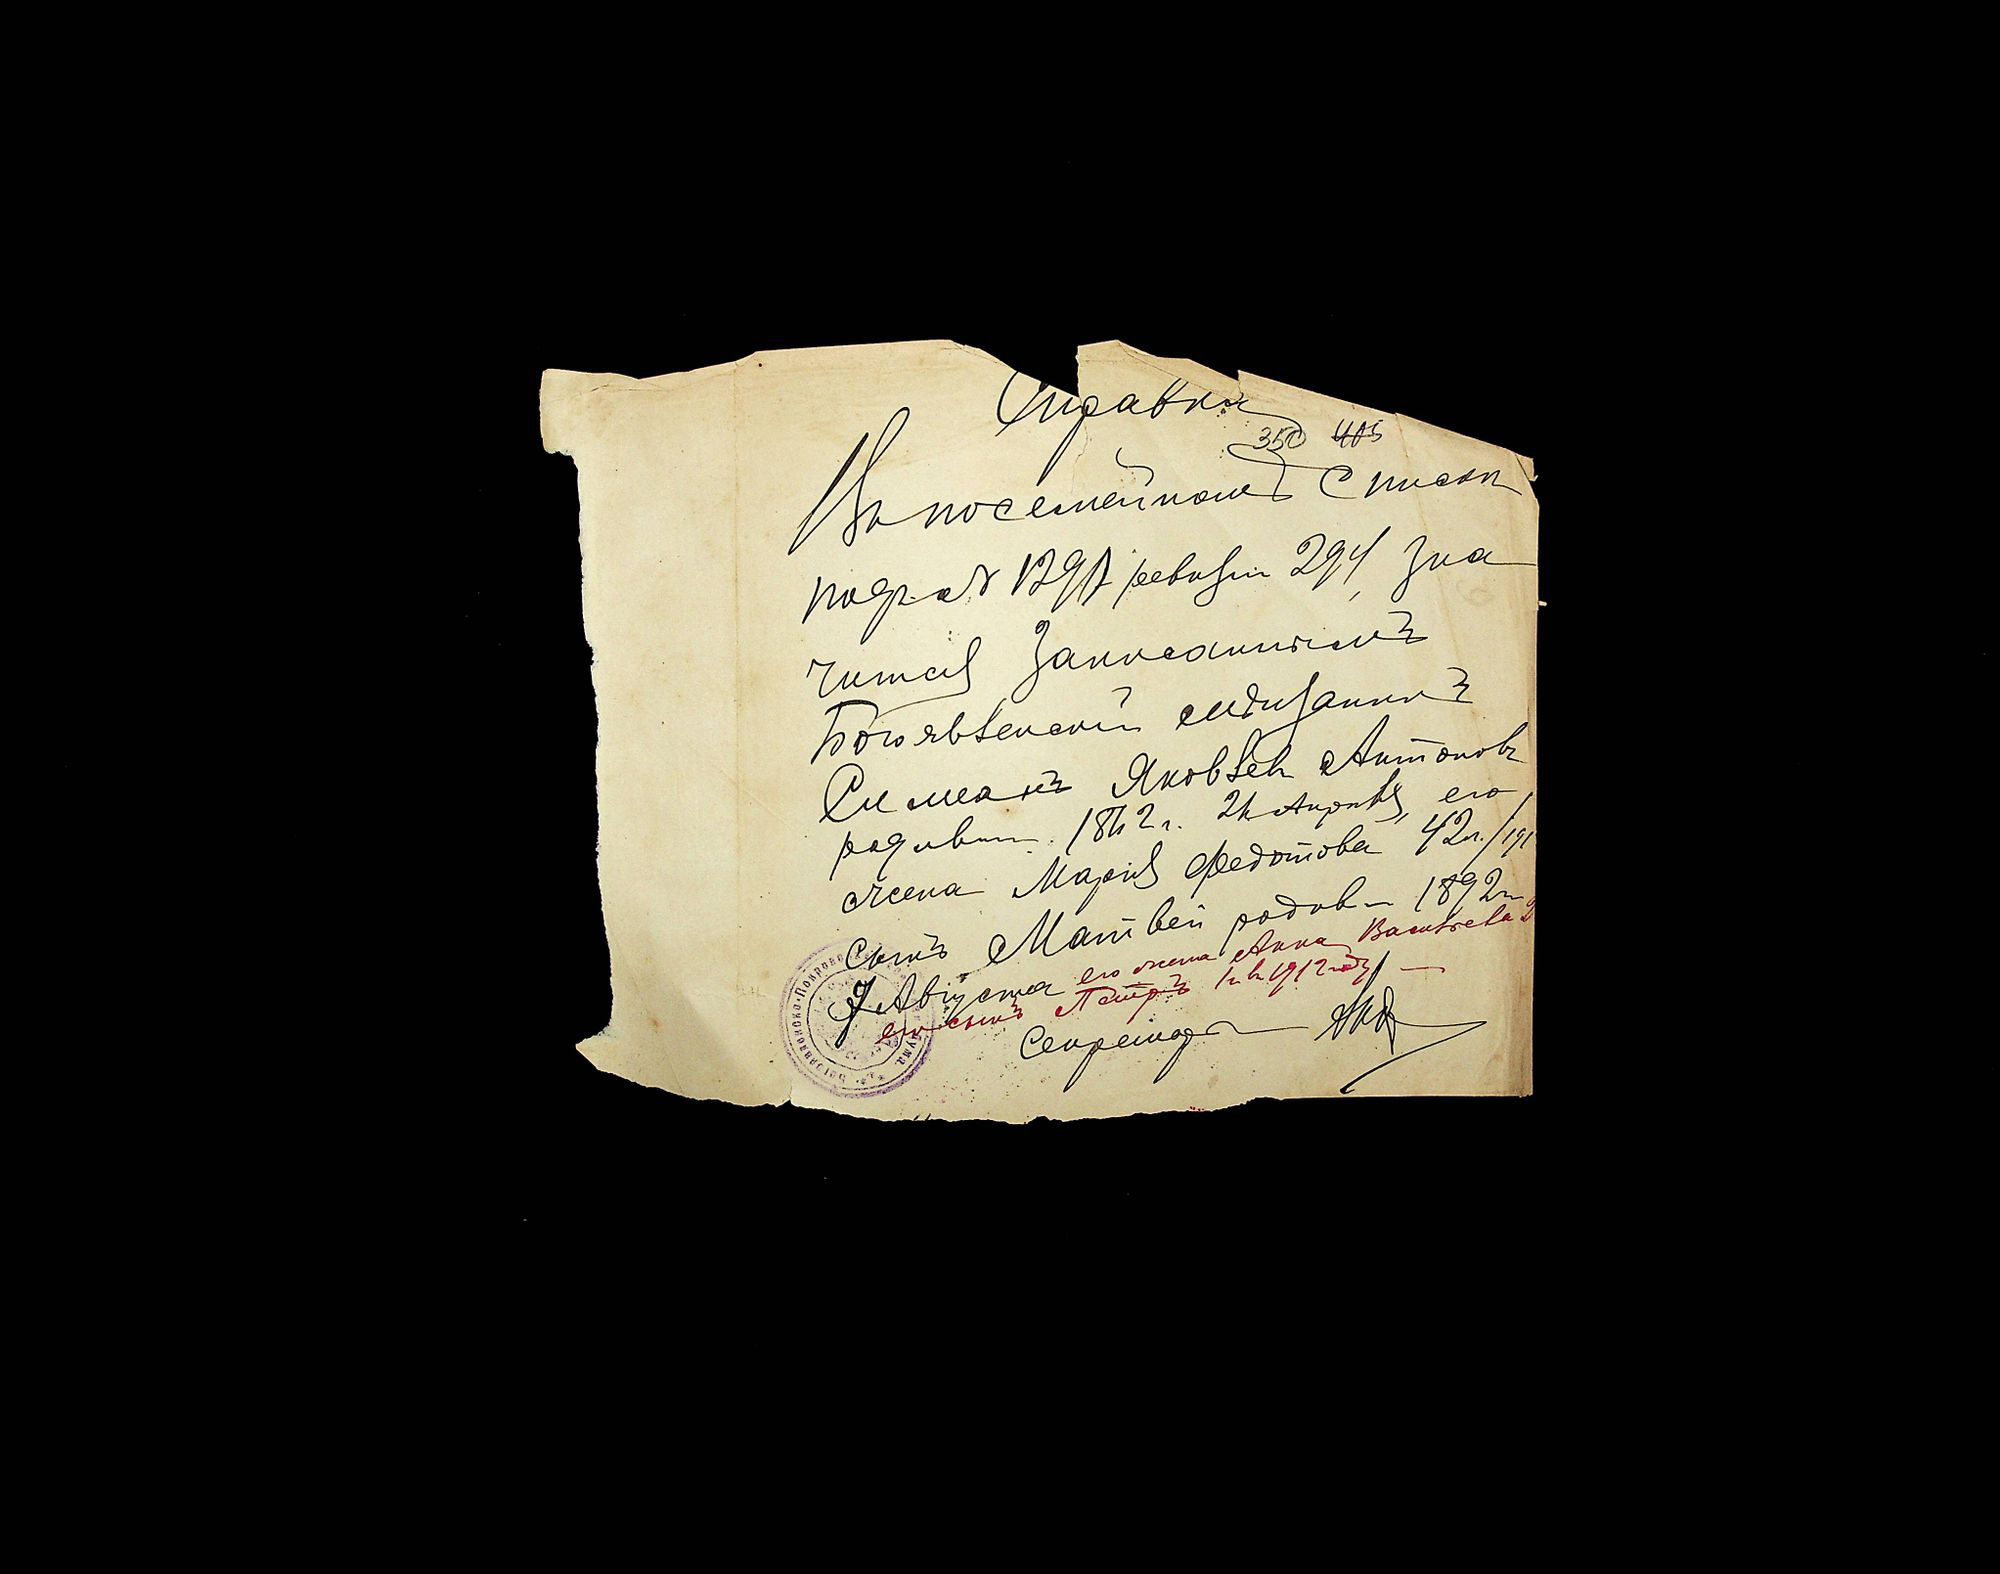 Справка
350 405
Въ посемейномъ списки
подъ № 1297 ревизіи 294, зна
чится Записаннымъ
Богоявленскій мѣщанинъ
Симеонъ Яковлевъ Антоновъ
родивш. 1862 г. 24 Апрѣля, его
жена Марія Федотова 42 л./191
сынъ Матвей родив. 1892
7 Августа его жена Анна Васильева 2
его сынъ Петръ 1 г. въ 1912 году
Секретарь